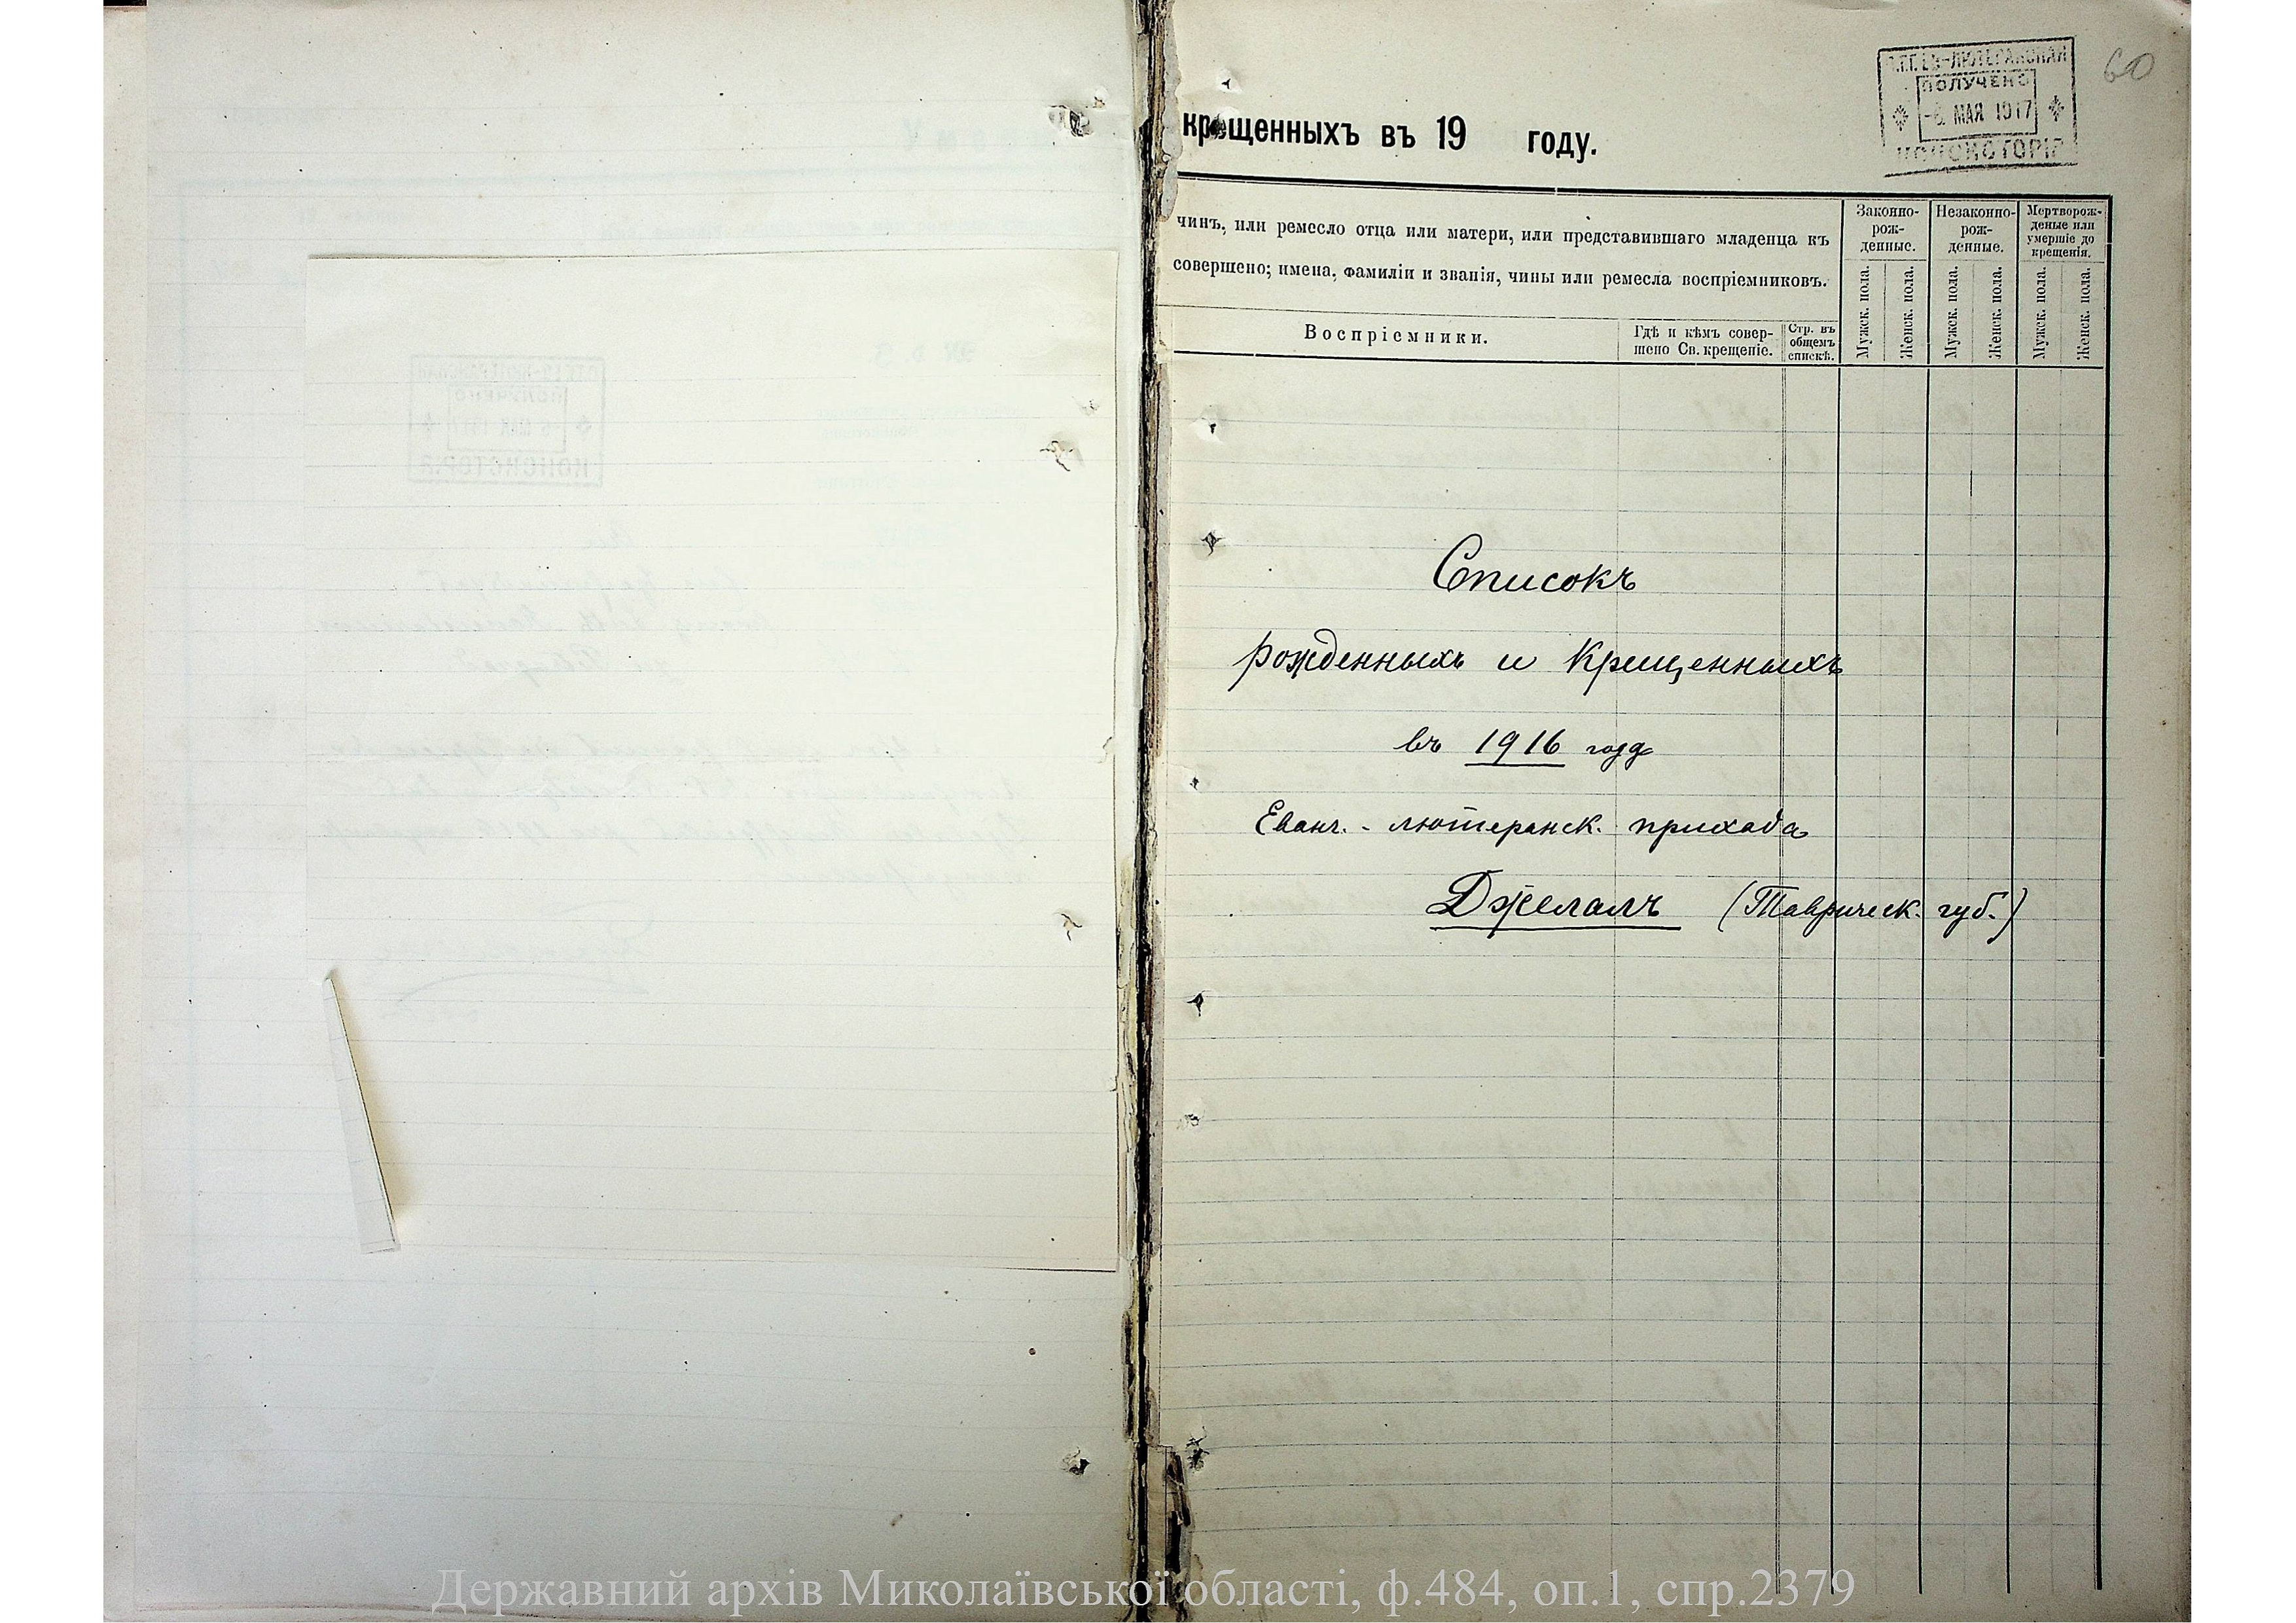 крещенныхъ въ 19 году.
60
ПОЛУЧЕНО
МАЯ 1917
КОНСИСТОРІЯ
чинъ, или ремесло отца или матери, или представившаго младенца къ
совершено; имена, фамиліи и званія, чины или ремесла воспріемниковъ.
Воспріемники.
Гдѣ и кѣмъ совер-
шено Св. крещеніе.
Стр. въ
общемъ
спискѣ.
Законно-
рож-
денные.
Незаконно-
рож-
денные.
Мертворож-
деные или
умершіе до
крещенія.
Мужск. пола.
Женск. пола.
Мужск. пола.
Женск. пола.
Мужск. пола.
Женск. пола.
Списокъ
рожденныхъ и Крещенныхъ
въ 1916 году
Еванг. - лютеранск. прихода
Джелалъ (Таврическ. губ.)
Державний архів Миколаївської області, ф.484, оп.1, спр.2379